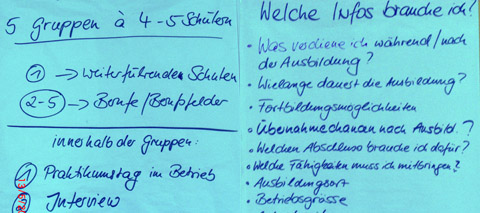 5 Gruppen à 4-5 Schülern
① → weiterführenden Schulen
②-5 → Berufe/Berufsfelder
innerhalb der Gruppen:
① Praktikumstag im Betrieb
② Interview
Welche Infos brauche ich?
• Was verdiene ich während/nach
der Ausbildung?
• Wielange dauert die Ausbildung?
• Fortbildungsmöglichkeiten
• Übernahmechancen nach Ausbild.?
• Welchen Abschluss brauche ich dafür?
• Welche Fähigkeiten muss ich mitbringen?
• Ausbildungsort
• Betriebsgrösse